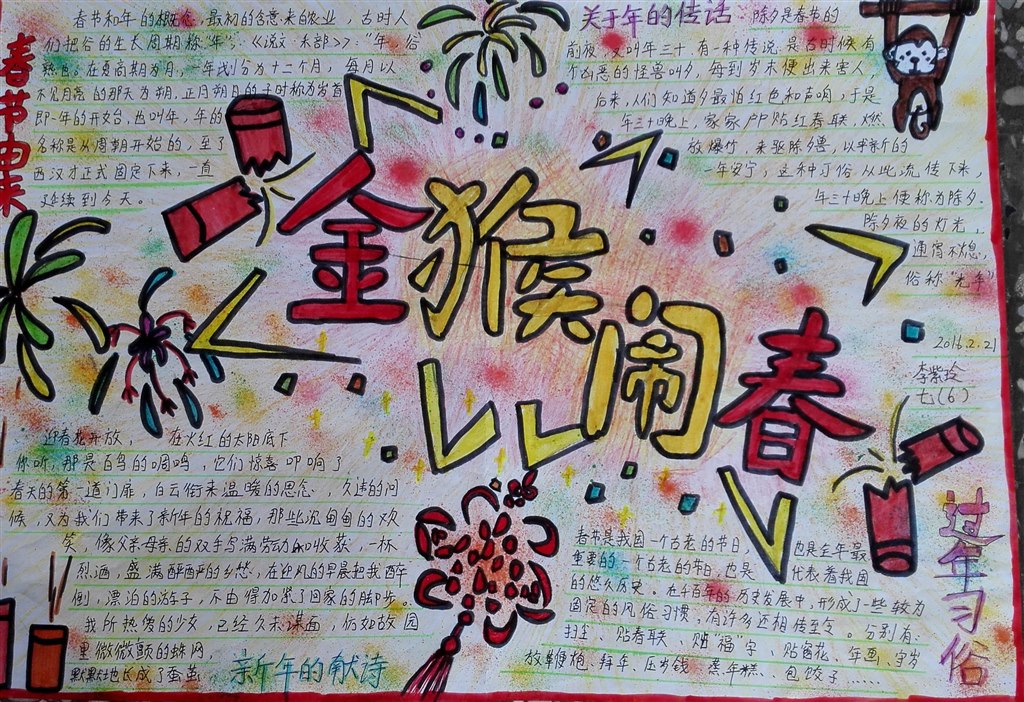 春节由来
春节和年的概念,最初的含意来自农业,古时人
们把谷的生长周期称"年",《说文·禾部》:"年,谷
熟也。在夏商期为月,一年划分为十二个月,每月以
不见月亮的那天为朔,正月朔日的子时称为岁首
即一年的开始,也叫年,年的
名称是从周朝开始的,至了
西汉才正式固定下来,一直
延续到今天。
关于年的传话
除夕是春节的
前夜,又叫年三十,有一种传说:是古时候有
个凶恶的怪兽叫夕,每到岁末便出来害人,
后来,人们知道夕最怕红色和声响,于是
年三十晚上,家家户户贴红春联,燃
放爆竹,来驱除夕兽,以求新的
一年安宁,这种习俗从此流传下来,
年三十晚上便称为除夕.
除夕夜的灯光
通宵不熄,
俗称"光年"
2016.2.21
李紫玲
七(6)
金猴闹春
迎春花开放, 在火红的太阳底下
你听,那是百鸟的啁鸣,它们惊喜叩响了
春天的第一道门扉,白云衔来温暖的思念,久违的问
候,又为我们带来了新年的祝福,那些沉甸甸的欢
笑,像父亲母亲的双手写满劳动和收获,一杯
烈酒,盛满醉酽的乡愁,在迎风的早晨把我醉
倒,漂泊的游子,不由得加紧了回家的脚步。
我所热爱的少女,已经久未谋面,仿如故园
里微微颤的蛛网,
默默地长成了蚕茧
新年的献诗
春节是我国一个古老的节日, 也是全年最
重要的一个古老的节日,也是 代表着我国
的悠久历史。在千百年的历史发展中,形成了一些较为
固定的风俗习惯,有许多还相传至今。分别有:
扫尘、贴春联、贴福字、贴窗花、年画、守岁
放鞭炮、拜年、压岁钱、蒸年糕、包饺子……
过年习俗